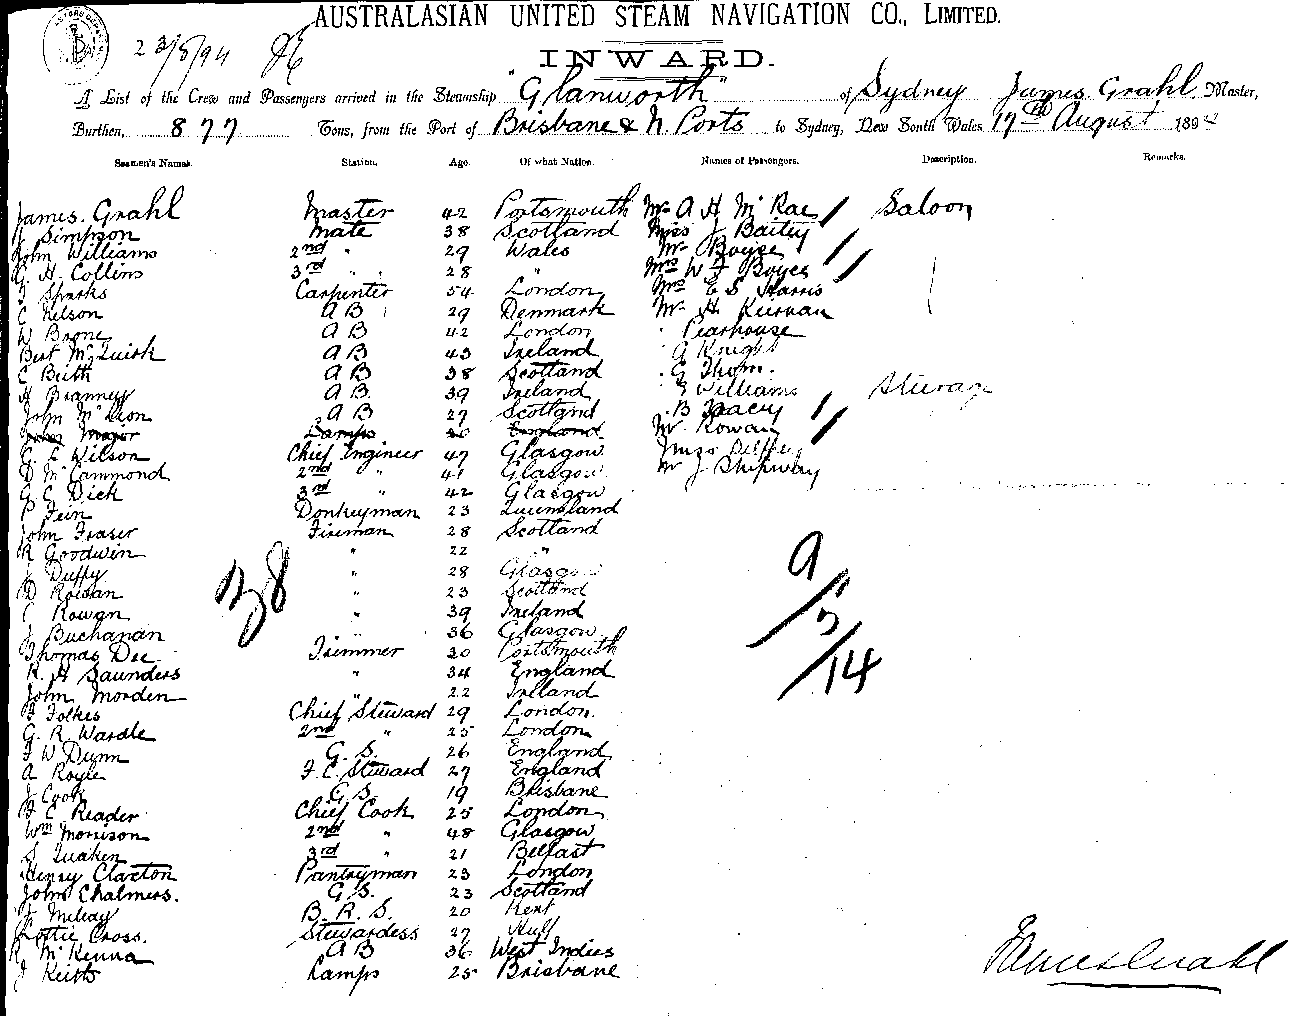 AUSTRALASIAN UNITED STEAM NAVIGATION CO., LIMITED.
23/8/94
INWARD.
A List of the Crew and Passengers arrived in the Steamship "Glanworth" of Sydney James Grahl Master,
Burthen, 877 Tons, from the Port of Brisbane & N. Ports to Sydney, New South Wales 17th August 1894
Seamen's Names. Station. Age. Of what Nation. Names of Passengers. Description. Remarks.
James Grahl Master 42 Portsmouth Mr A H McRae Saloon
Simpson Mate 38 Scotland Miss J Bailey
John Williams 2nd " 29 Wales Mr Boyse
G. H. Collins 3rd " 28 " Mrs W J Boyce
Sparks Carpenter 54 London Mrs E S Harris
C Nelson A B 29 Denmark Mr H Kiernan
W Boone A B 42 London " Pearhouse
Bert McQuirk A B 43 Ireland G Knight
C Beith A B 38 Scotland G Thom.
H Branney A B. 39 Ireland E Williams Steerage
John McDion A B 27 Scotland B Tracey
John Major Lamps 20 England Mr Rowan
G. E Wilson Chief Engineer 47 Glasgow
D McCammond 2nd " 41 Glasgow Mr J Shipway
G C Dick 3rd " 42 Glasgow
P Fein Donkeyman 23 Queensland
John Fraser Fireman 28 Scotland
R Goodwin " 22 "
J Duffy " 28 Glasgow
D Rowan " 23 Scotland
C Rowan " 39 Ireland
J Buchanan " 36 Glasgow
Thomas Dee Trimmer 30 Portsmouth
R. H Saunders " 34 England
John Morden " 22 Ireland
F Folkes Chief Steward 29 London
G. R. Wardle 2nd " 25 London
F W Dunn G. S. 26 England
A Royle F.C. Steward 27 England
J Cook G.S. 19 Brisbane
F C Reader Chief Cook 25 London
Wm Morrison 2nd " 48 Glasgow
S Quaken 3rd " 21 Belfast
Henry Claxton Pantryman 23 London
John Chalmers. G.S. 23 Scotland
J Melray B. R. S. 20 Kent
Lottie Cross. Stewardess 27 Hull
R McKenna A B 36 West Indies
J Keith Lamps 25 Brisbane
38
9/5/14
James Grahl